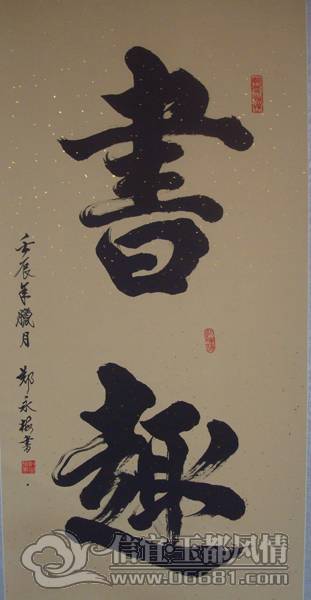 書趣
壬辰年臘月 鄭永梅書
信宜玉都风情
www.06681.com